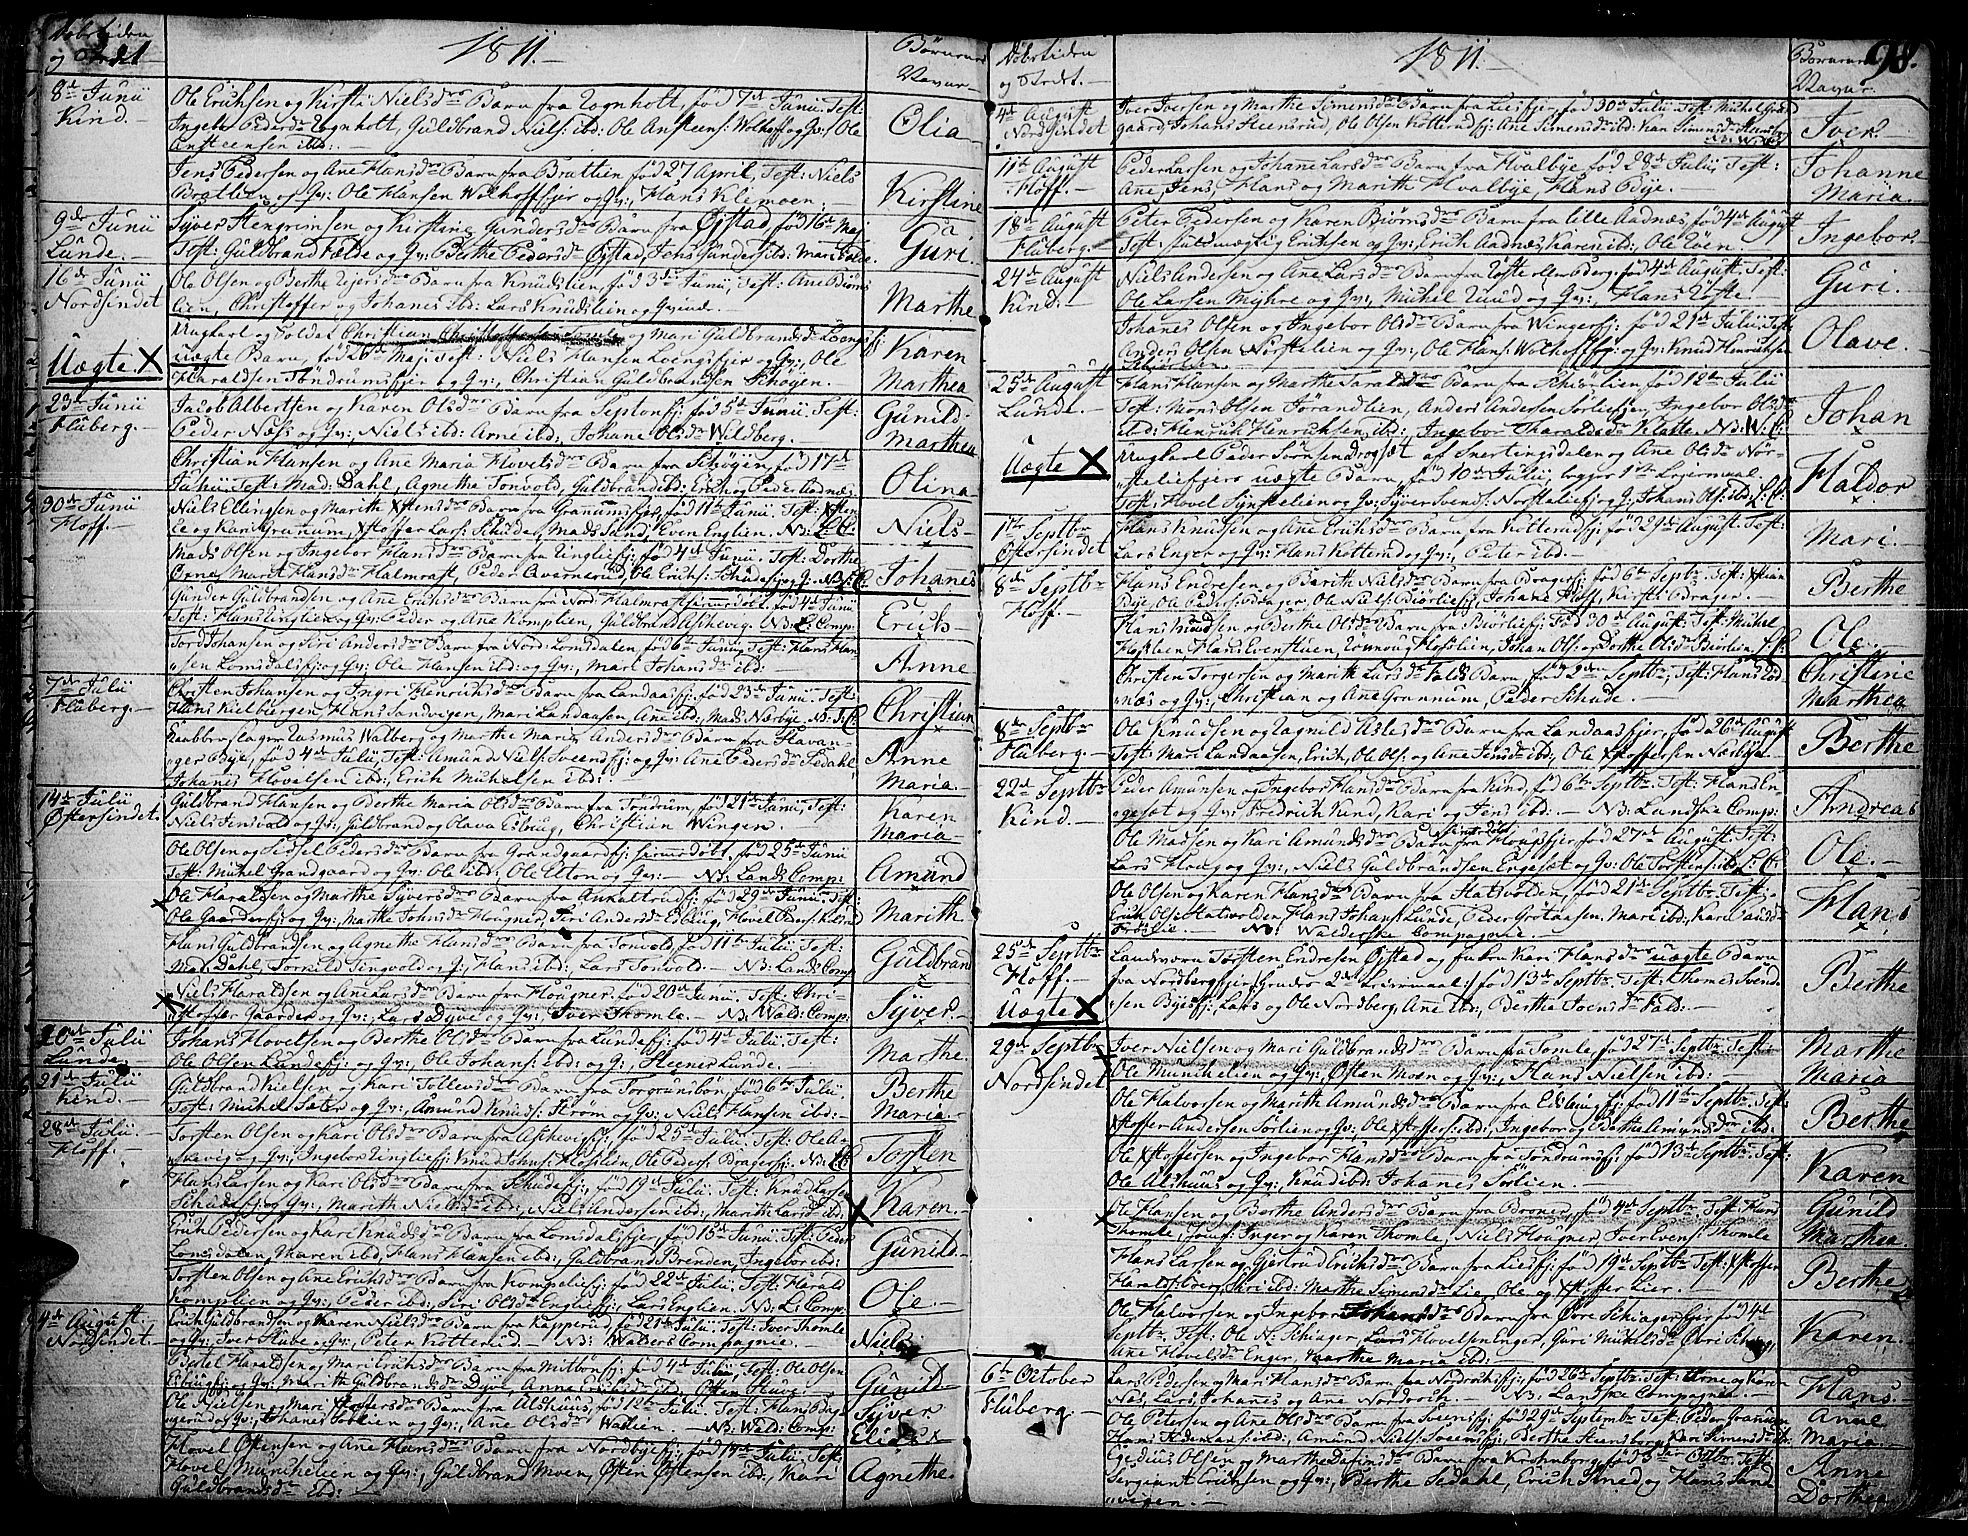 Døbstiden
og Stedet
1811.
Børnenes
Navne
8de Junii
Kind.
Ole Erichsen og Kirsti Nielsdr Barn fra Rognholt, fød 7de Junii. Test:
Ingebor Pedersdr Rognholt, Guldbrand Niels: ibd: Ole Ansteens: Wolhoff og Qv: Ole
Ansteensen ibd:
Olia
Jens Pedersen og Ane Hansdr Barn fra Brattlien fød 27 April, Test: Niels
Brattlien og Qv: Ole Hansen Wolhoffsejer og Qv:, Hans Klemoen.
Kirstine
9de Junii
Lunde.
Syver Stengrimsen og Kirstine Gundersdr Barn fra Øistad, fød 16de Maj
Test: Guldbrand Falde og Qv: Berthe Pedersdr Øystad, Jens Gunders: ibd: Mari
Guri
16de Junii
Nordsindet
Ole Olsen og Berthe Barn fra Knudslien, fød 3de Junii, Test: Ane Biørns
lien, Christoffer og Johanes ibd: Lars Knudslien og
Marthe
Uægte X
Ungkarl og Soldat Christian Christophersen Tomle og Mari Guldbrandsdr Loengs
uægte Barn, fød 26de Maj Test: Niels Hansen Loengsejer og Qv:, Ole
Haraldsen Tøndrumsejer og Qv:, Christian Guldbrandsen Schøyen.
Karen
Marthea
23de Junii
Fluberg.
Jacob Albertsen og Karen Olsdr Barn fra Septonsj: fød 5de Junii. Test:
Peder Næss og Qv:, Niels ibd: Arne ibd:, Johane Olsdr Wildberg.
Gunild
Marthea
Christian Hansen og Ane Maria Hovelsdr Barn fra Schøyen, fød 17de
Junii. Test: Mad: Dahl, Agnethe Tonvold, Guldbrand ibd: Erich og Peder Aadnæs
Olina
30de Junii
Hoff.
Niels Ellingsen og Marithe Xstensdr Barn fra Granumsejer, fød 11te Junii. Test:
Lie og Kari Granum, Xstoffer Lars: Schude, Mads Sand, Even Englien, NB: L.C:
Niels
Mads Olsen og Ingebor Hansdr Barn fra Englies: fød 4de Junii. Test: Dorthe
Marit Hansdr Halmrast, Peder Avernerud, Ole Erichs: Schudesj og Q: NB: L.C:
Johanes
Gunder Guldbrandsen og Ane Erichsdr Barn fra Nord: Halmrast hiemmedøbt, fød 4de Junii
Test: Hans Englien og Qv: Peder og Ane Komplien, Guldbrand Askevig. NB: L: Comp:
Erick
Tord Johansen og Siri Andersdr Barn fra Nord: Lomsdalen, fød 6te Junii Test: Hans Han
sen Lomsdalsej: og Qv: Ole Hansen ibd: og Qv:, Mari Johansdr ibd:
Anne
7de Julii
Fluberg.
Christen Johansen og Ingri Henrichsdr Barn fra Landaasej: fød 23de Junii, Test:
Hans Kielbergen, Hans Sandvigen, Mari Landaasen, Ane ibd:, Mads Nærbye, NB: L:C:
Christian
Kaabberslager Rasmus Walberg og Marthe Maria Andersdr Barn fra Stavan
ger Bye, fød 4de Julii, Test: Amund Niels: Sveensj: og Qv: Ane Pedersdr Sedahl,
Johanes Hovelsen ibd:, Erich Michelsen ibd:
Anne
Maria.
14de Julii
Østersindet.
Guldbrand Hansen og Berthe Maria Olsdr Barn fra Tøndrum, fød 21de Junii, Test:
Niels Jensvold og Qv:, Guldbrand og Olava Esbiug, Christian Wingen.
Karen
Maria
Ole Olsen og Sidsel Pedersdr Barn fra Grandgaardsj: hiemmedøbt, fød 25de Junii
Test: Michel Grandgaard og Qv: Ole ibd:, Ole Elton og Qv: NB: Lands Comp:
Amund
Ole Haraldsen og Marthe Syversdr Barn fra Ankattrud, fød 29de Junii. Test:
Ole Gaardersj: og Qv:, Marthe Johnsdr Hougner, Siri Andersdr Esbiug, Hovel
Marith.
Hans Guldbrandsen og Agnethe Hansdr Barn fra Tonvold, fød 11te Julii, Test:
Mad: Dahl, Torkild Singvold og Q:, Hans ibd:, Lars Tonvold. NB: Lands: Comp:
Guldbrand
Niels Haraldsen og Ane Larsdr Barn fra Hougner, fød 20de Junii. Test: Chri-
stoffer Gaarder og Qv:, Lars Dyve og Qv:, Iver Thomle. NB: Wald: Comp:
Syver.
20de Julii
Lunde.
Johans Hovelsen og Berthe Olsdr Barn fra Lundesj: fød 4de Julii, Test:
Ole Olsen Lundesj: og Qv:, Ole Johans: ibd: og Q:, Steener Lunde.
Marthe.
21de Julii
Kind.
Guldbrand Nielsen og Kari Tollevsdr Barn fra Torgrimsbøn, fød 6te Julii.
Test: Michel Sæter og Qv:, Amund Knuds: Strøm og Qv:, Niels Hansen ibd:
Berthe
Maria.
28de Julii.
Hoff.
Torsten Olsen og Kari Olsdr Barn fra Askevigs: fød 25de Julii. Test: Ole A-
skevig og Qv:, Ingebor Englies: Knud Johns: Hofslien, Ole Peders: Bragersj: NB: L.C:
Torsten
Hans Larsen og Kari Olsdr Barn fra Schudesj:, fød 19de Julii. Test: Knud Larsen
Schudesj: og Qv:, Marith Nielsdr ibd:, Niels Andersen ibd:, Marith Larsdr ibd:
Karen.
Erich Pedersen og Kari Knudsdr Barn fra Lomsdalsejer, fød 15de Junii. Test: Peder
Lomsdalen, Karen ibd:, Hans Hansen ibd:, Guldbrand Brenden, Ingebor ibd:
Gunild.
Torsten Olsen og Ane Erichsdr Barn fra Kompeliesj: fød 22de Julii. Test: Harald
Komplien og Qv:, Peder ibd:, Siri Olsdr Engliesj:, Lars Englien. NB: L: Comp:
Ole.
4de August
Nordsindet.
Erich Guldbrandsen og Karen Nielsdr Barn fra Kopperud, fød 21de Julii. Test: Iver Thomle
og Qv:, Iver Stube og Qv:, Peter Kotterud. NB: Walders Compagnie.
Niels
Bertel Haraldsen og Mari Erichsdr Barn fra Mitbønsj: fød 4de Julii, Test: Ole Olsen
Esbiugsj: og Qv:, Marith Guldbrandsdr Dyve, Anne Erichsdr ibd:, Østen Stuve.
Gunild
Ole Nielsen og Mari Xstophersdr Barn fra Aldshuus, fød 12te Julii. Test: Hans
og Qv:, Johanes Sørlien og Qv:, Ane Olsdr Wadlien. NB: Wald: Comp:
Syver
Elias
Hovel Østensen og Ane Hansdr Barn fra Nordbyesj: fød 14de Julii, Test:
Hovel Munchelien og Qv:, Guldbrand Moen, Østen Østensen ibd:, Kari
Guldbrandsdr ibd:
Agnethe
Døbstiden
og Stedet.
1811.
Børnenes
Navne
98.
4de August
Nordsindet
Iver Iversen og Marthe Simensdr Barn fra Liesejer, fød 30te Julii Test: Michel Grand
gaard, Johans Steensrud, Ole Olsen Kotterudsj: Ane Simensdr ibd: Kari Simensdr
NB: W: C:
Iver.
11te August
Hoff.
Peder Larsen og Johane Larsdr Barn fra Hvalbye fød 28de Julii, Test:
Ane, Jens, Hans og Marith Hvalbye, Hans Bye.
Johanne
Maria.
18de August
Fluberg.
Peter Pedersen og Karen Biørnsdr Barn fra lille Aadnæs, fød 4de August
Test: Erichsen og Qv:, Erich Aadnæs, Karen ibd:, Ole Røen.
Ingebor.
24de August
Kind.
Niels Andersen og Ane Larsdr Barn fra Røste fød 4de August. Test:
Ole Larsen Myhre og Qv:, Michel Ruud og Qv:, Hans Røste
Guri.
Johanes Olsen og Ingebor Olsdr Barn fra Wingersj: fød 21de Julii, Test:
Anders Olsen Nørstelien og Qv:, Ole Hans: Wolhoff og Qv:, Knud Henrichsen
Olave.
25de August
Lunde.
Hans Hansen og Marthe Taraldsdr Barn fra Schiørlien fød 12te Julii
Test: Mons Olsen Jørandlien, Anders Andersen Sørliesejer, Ingebor Olsdr
ibd: Henrich Henrichsen ibd:, Ingebor Tharaldsdr Klatte. NB: W: C:
Johan
Uægte X
Ungkarl Peder Sørensen Dragsæt af Snertingsdalen og Ane Olsdr Nør-
steliesejers uægte Barn, fød 10de Julii, begges 1ste Leiermaal.
Test: Hovel Synstelien og Q: Syver Svends: Nørsteliesej: og Q: Johans Ols: ibd: L.C:
Haldor
1ste Septbr
Østersindet
Hans Knudsen og Ane Erichsdr Barn fra Kotterud, fød 29de August. Test:
Lars Enger og Qv: Hans Kotterud og Qv:, Peter ibd:
Mari.
8de Septbr
Hoff.
Hans Endresen og Barith Nielsdr Barn fra Bragersj: fød 6te Septbr. Test: Xstian
Bye, Ole Peders: Brager, Ole Niels: Biørliesj:, Johane Hoff, Kirsti Brager.
Berthe
Hans Knudsen og Berthe Olsdr Barn fra Biørliesj: Fød 30te August. Test: Michel
Hofslien, Hans Evenstuen, Hofslien, Johan Ols: og Dorthe Olsdr Biørlien, L.C:
Ole.
Christen Torgersen og Marith Larsdr Falds Barn, fød 2den Septbr, Test: Hans
næs og Qv:, Christian og Ane Grannum, Peder Schude
Christine
Marthea
8de Septbr
Fluberg.
Ole Knudsen og Ragnild Aslesdr Barn fra Landaasejer, fød 26de August
Test: Mari Landaasen, Erich, Ole Ols: og Ane Jensdr ibd:, Ole Xstoffersen
Berthe
22de Septbr
Kind.
Peder Amundsen og Ingebor Hansdr Barn fra Kind, fød 6te Septbr. Test: Hans En-
geset og Qv:, Fredrich Kind, Kari og Jens ibd: NB: Landske Comp:
Andreas
Ole Madsen og Kari Amundsdr Barn fra Hougsejer, fød 27de August. Test:
Lars Houg og Qv:, Niels Guldbrandsen Engeset og Qv: Ole Torstens: ibd: L: C:
Ole.
Ole Olsen og Karen Hansdr Barn fra Hatvolden, fød 21de Septbr. Test:
Erich Ols: Hatvolden, Hans Johans: Lunde, Peder Grøtaasen, Mari ibd:, Kari
Frølie. NB: Walderske Compagnie.
Hans
25de Septbr
Hoff.
Uægte X
Landværn Torsten Endresen Øistad og Enke Kari Hansdr uægte Barn
fra Nordbergsejer (hendes 2det Leiermaal) fød 13de Septbr. Test: Thomes Svend
sen Byesj:, Lars og Ole Nordberg, Ane ibd:, Berthe Joensdr Fald.
Berthe
29de Septbr
Nordsindet
Iver Nielsen og Mari Guldbrandsdr Barn fra Tomle, fød 27de Septbr. Test:
Ole Munchelien og Qv:, Østen Moen og Qv:, Hans Nielsen ibd:
Marthe
Maria
Ole Halvorsen og Marith Amundsdr Barn fra Esbiugsj: fød 11te Septbr. Test:
Xstoffer Andersen Sørlien og Qv:, Ole Xstoffers: ibd:, Ingebor og Berthe Amundsdr ibd:
Berthe
Ole Xstoffersen og Ingebor Hansdr Barn fra Tøndrumsj: fød 13de Septbr. Test:
Ole Alshuus og Qv:, Knud ibd: Johanes Sørlien.
Karen
Ole Hansen og Berthe Andersdr Barn fra Broner, fød 4de Septbr. Test: Hans
Thomle, Josef: Inger og Karen Thomle, Niels Hougner, Iver Evens: Thomle
Gunild
Marthea
Hans Larsen og Giertrud Erichsdr Barn fra Liesj: fød 19de Septbr. Test: Xstoffer
Haraldsj: ibd: Marthe Simensdr Lie, Ole og Xstoffer Lier.
Berthe
Ole Halvorsen og Ingebor Johansdr Barn fra Øvre Schiagersejer fød 4de
Septbr. Test: Ole N: Schiager, Lars Hovelsen Enger, Guri Michelsdr Øvre Schiager
Ane Hovelsdr Enger, Marthe Maria ibd:
Karen.
6te October
Fluberg.
Lars Pedersen og Mari Hansdr Barn fra Nordrohsj: fød 26de Septbr. Test: Arne og Karen
Næs, Lars, Johanes og Ane Nordroh. NB: Landske Compagnie.
Hans.
Ole Petersen og Ane Olsdr Barn fra Sveensj: fød 29de Septembr. Test: Peder Granum
Hans Pedersen ibd:, Amund Niels: Sveensj:, Berthe Steensberg, Kari Simensdr ibd:
Anne
Maria.
Egedius Olsen og Marthe Dafinsdr Barn fra Krohnborg, fød 3de Octbr. Test:
Sergiant Erichsen og Qv:, Berthe Sedahl, Erich Smed og Hans Sand
vigen.
Anne
Dorthea